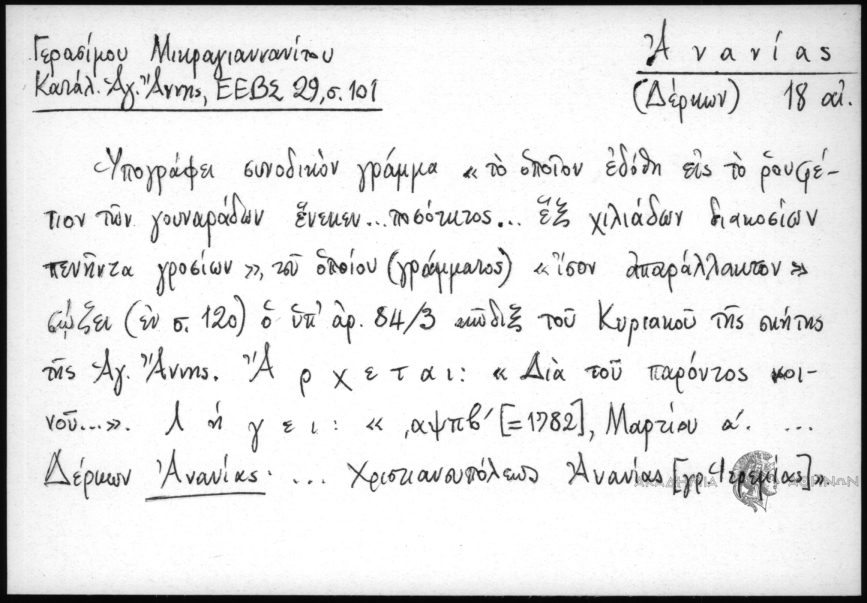 Γερασίμου Μικραγιαννανίτου
Κατάλ. Ἁγ. Ἄννης, ΕΕΒΣ 29, σ. 101
Ἀνανίας
(Δέρκων) 18 αἰ.
Ὑπογράφει συνοδικὸν γράμμα «τὸ ὁποῖον ἐδόθη εἰς τὸ ῥουφέ-
τιον τῶν γουναράδων ἕνεκεν... ποσότητος... ἓξ χιλιάδων διακοσίων
πενῆντα γροσίων», τοῦ ὁποίου (γράμματος) «ἴσον ἀπαράλλακτον»
σῴζει (ἐν σ. 120) ὁ ὑπ' ἀρ. 84/3 κῶδιξ τοῦ Κυριακοῦ τῆς σκήτης
τῆς Ἁγ. Ἄννης. Ἄρχεται: «Διὰ τοῦ παρόντος κοι-
νοῦ...». Λήγει: «͵αψπβ' [=1782], Μαρτίου α'. ...
Δέρκων Ἀνανίας· ... Χριστιανουπόλεως Ἀνανίας [γρ. Ἱερεμίας]».
ΑΚΑΔΗΜΙΑ ΑΘΗΝΩΝ